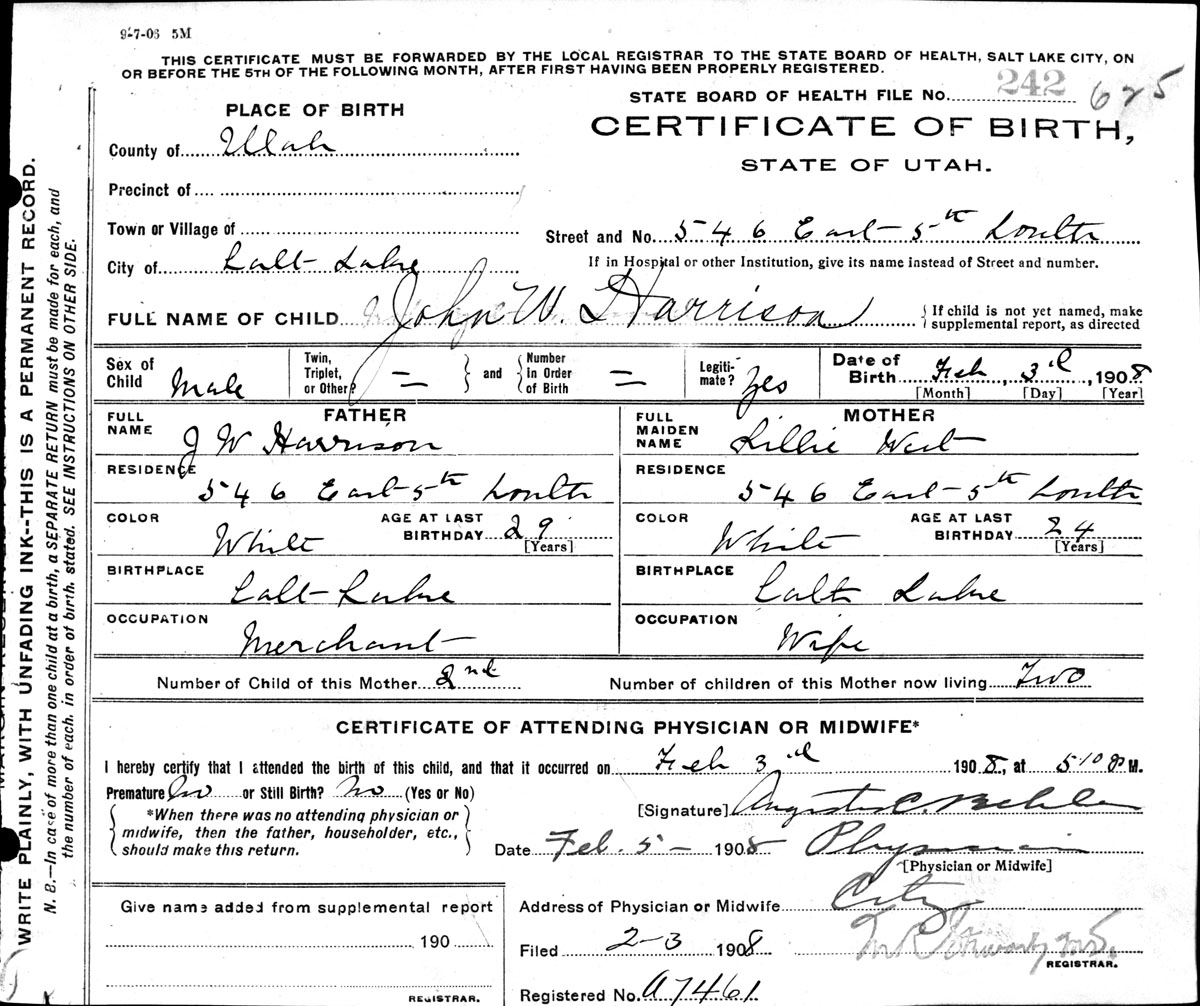 9-7-06 5M
THIS CERTIFICATE MUST BE FORWARDED BY THE LOCAL REGISTRAR TO THE STATE BOARD OF HEALTH, SALT LAKE CITY, ON
OR BEFORE THE 5TH OF THE FOLLOWING MONTH, AFTER FIRST HAVING BEEN PROPERLY REGISTERED.
STATE BOARD OF HEALTH FILE No. 242 625
PLACE OF BIRTH
CERTIFICATE OF BIRTH,
STATE OF UTAH.
County of Utah
Precinct of
Town or Village of
Street and No. 546 East 5th South
City of Salt Lake
If in Hospital or other Institution, give its name instead of Street and number.
FULL NAME OF CHILD John W. Harrison
If child is not yet named, make
supplemental report, as directed
Sex of
Child Male
Twin,
Triplet,
or Other? =
and
Number
In Order
of Birth =
Legiti-
mate? Yes
Date of
Birth Feb, 3rd, 1908
[Month] [Day] [Year]
FATHER
FULL
NAME J W Harrison
RESIDENCE
546 East 5th South
COLOR White
AGE AT LAST
BIRTHDAY 29
[Years]
BIRTHPLACE
Salt Lake
OCCUPATION
Merchant
MOTHER
FULL
MAIDEN
NAME Lillie West
RESIDENCE
546 East 5th South
COLOR White
AGE AT LAST
BIRTHDAY 24
[Years]
BIRTHPLACE
Salt Lake
OCCUPATION
Wife
Number of Child of this Mother 2nd
Number of children of this Mother now living Two
CERTIFICATE OF ATTENDING PHYSICIAN OR MIDWIFE*
I hereby certify that I attended the birth of this child, and that it occurred on Feb 3rd 1908, at 5 10 P M.
Premature No or Still Birth? No (Yes or No)
*When there was no attending physician or
midwife, then the father, householder, etc.,
should make this return.
[Signature] Augustus C. Behle
Date Feb. 5 - 1908 Physician
[Physician or Midwife]
Give name added from supplemental report
190
REGISTRAR.
Address of Physician or Midwife City
Filed 2-3 1908
REGISTRAR.
Registered No. A7461
WRITE PLAINLY, WITH UNFADING INK--THIS IS A PERMANENT RECORD.
N. B.—In case of more than one child at a birth, a SEPARATE RETURN must be made for each, and
the number of each, in order of birth, stated. SEE INSTRUCTIONS ON OTHER SIDE.